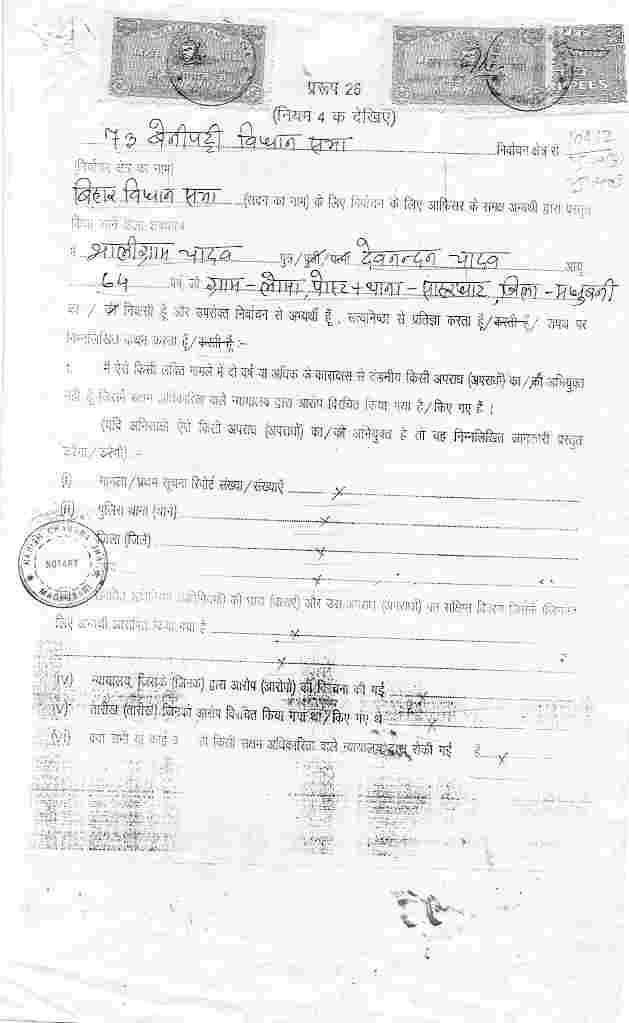 प्ररूप 26
(नियम 4 क देखिए)
73 बेनीपट्टी विधान सभा निर्वाचन क्षेत्र सं
(निर्वाचन क्षेत्र का नाम)
बिहार विधान सभा (सदन का नाम) के लिए निर्वाचन के लिए आफिसर के समक्ष अभ्यर्थी द्वारा प्रस्तुत
किया जाने वाला शपथपत्र
मैं शालीग्राम यादव पुत्र/पुत्री/पत्नी देवनन्दन यादव आयु
64 वर्ष, जो ग्राम - लोमा, पोस्ट + थाना - साहरघाट, जिला - मधुबनी
का / की निवासी हूँ और उपरोक्त निर्वाचन से अभ्यर्थी हूँ, सत्यनिष्ठा से प्रतिज्ञा करता हूँ/करती हूँ/ शपथ पर
निम्नलिखित कथन करता हूँ/करती हूँ :-
1. मैं ऐसे किसी लंबित मामले में दो वर्ष या अधिक के कारावास से दंडनीय किसी अपराध (अपराधों) का/की अभियुक्त
नहीं हूँ जिसमें सक्षम अधिकारिता वाले न्यायालय द्वारा आरोप विरचित किया गया है/किए गए हैं।
(यदि अभिसाक्षी ऐसे किसी अपराध (अपराधों) का/की अभियुक्त है तो वह निम्नलिखित जानकारी प्रस्तुत
करेगा/करेगी) :-
(i) मामला/प्रथम सूचना रिपोर्ट संख्या/संख्याएँ x
(ii) पुलिस थाना (थाने) x
जिला (जिले) x
x
HARISH CHANDRA JHA
NOTARY
MADHUBANI
की धारा (धाराएं) और उस अपराध (अपराधों) का संक्षिप्त विवरण जिसके (जिनके)
लिए अभ्यर्थी आरोपित किया गया है x
x
(iv) न्यायालय, जिसके (जिनके) द्वारा आरोप (आरोपों) की विरचना की गई x
(v) तारीख (तारीखें) जिनको आरोप विरचित किया गया था/किए गए थे x
(vi) क्या सभी या कोई किसी सक्षम अधिकारिता वाले न्यायालय द्वारा रोकी गई है x